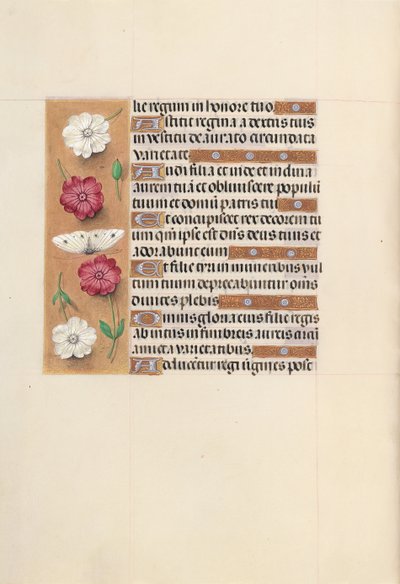 lie regum in honore tuo
Astitit regina a dextris tuis
in vestitu deaurato circumdata
varietate
Audi filia et vide et inclina
aurem tuā et obliviscere populū
tuum et domū patris tui
Et concupiscet rex decorem tu
um qm̄ ipse est dn̄s deus tuus et
adorabunt eum
Et filie tyri in muneribus vul
tum tuum deprecabuntur om̄s
divites plebis
Omnis gloria eius filie regis
ab intus in fimbreis aureis circū
amicta varietatibus
Adducentur regi virgines post